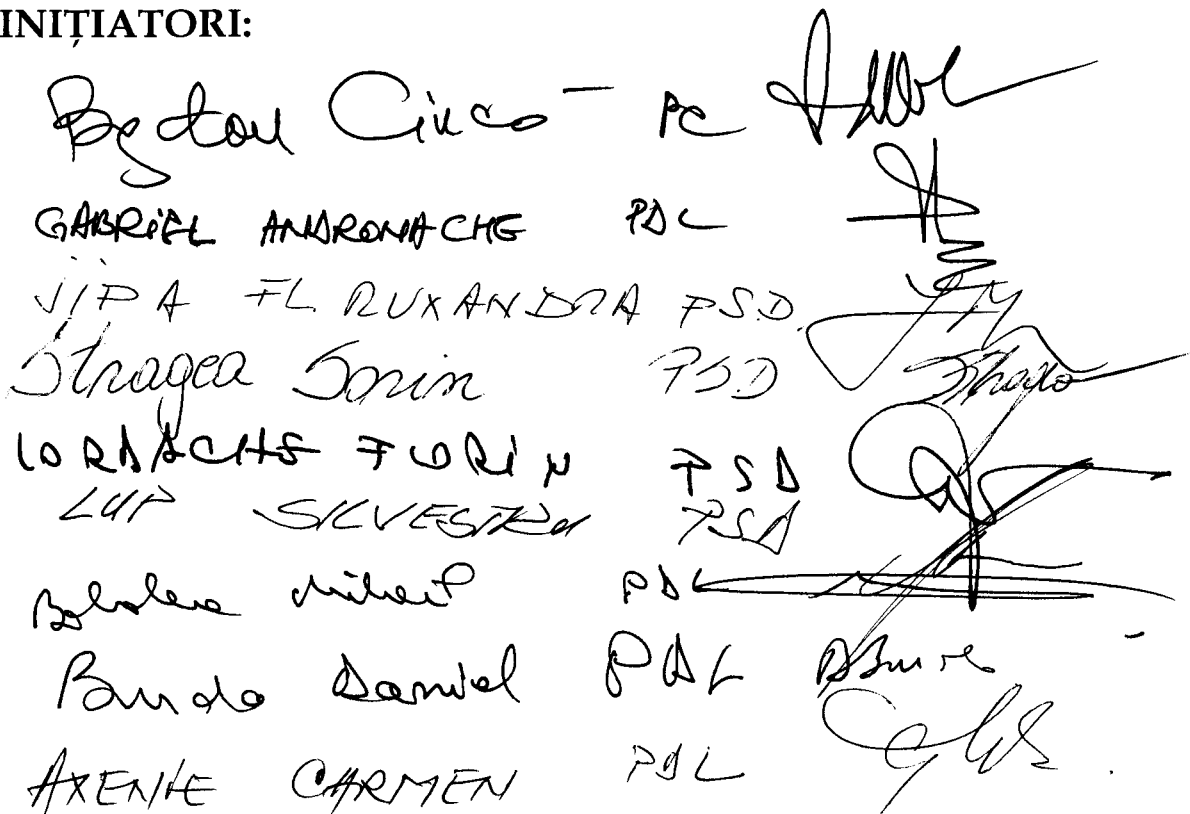 INIȚIATORI:
Bogdan Ciucă - PC
GABRIEL ANDRONACHE PDL
JIPA FL RUXANDRA PSD.
Stragea Sorin PSD
IORDACHE FLORIN PSD
LUP SILVESTRU PSD
PDL
Buda Daniel PDL
AXENTE CARMEN PDL